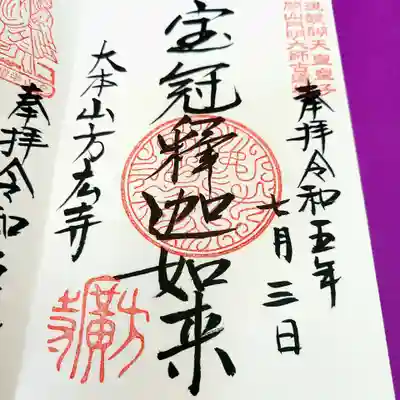 奉拝令和五年
七月三日
宝冠釋迦如来
大本山方広寺
方廣寺
奉拝令和